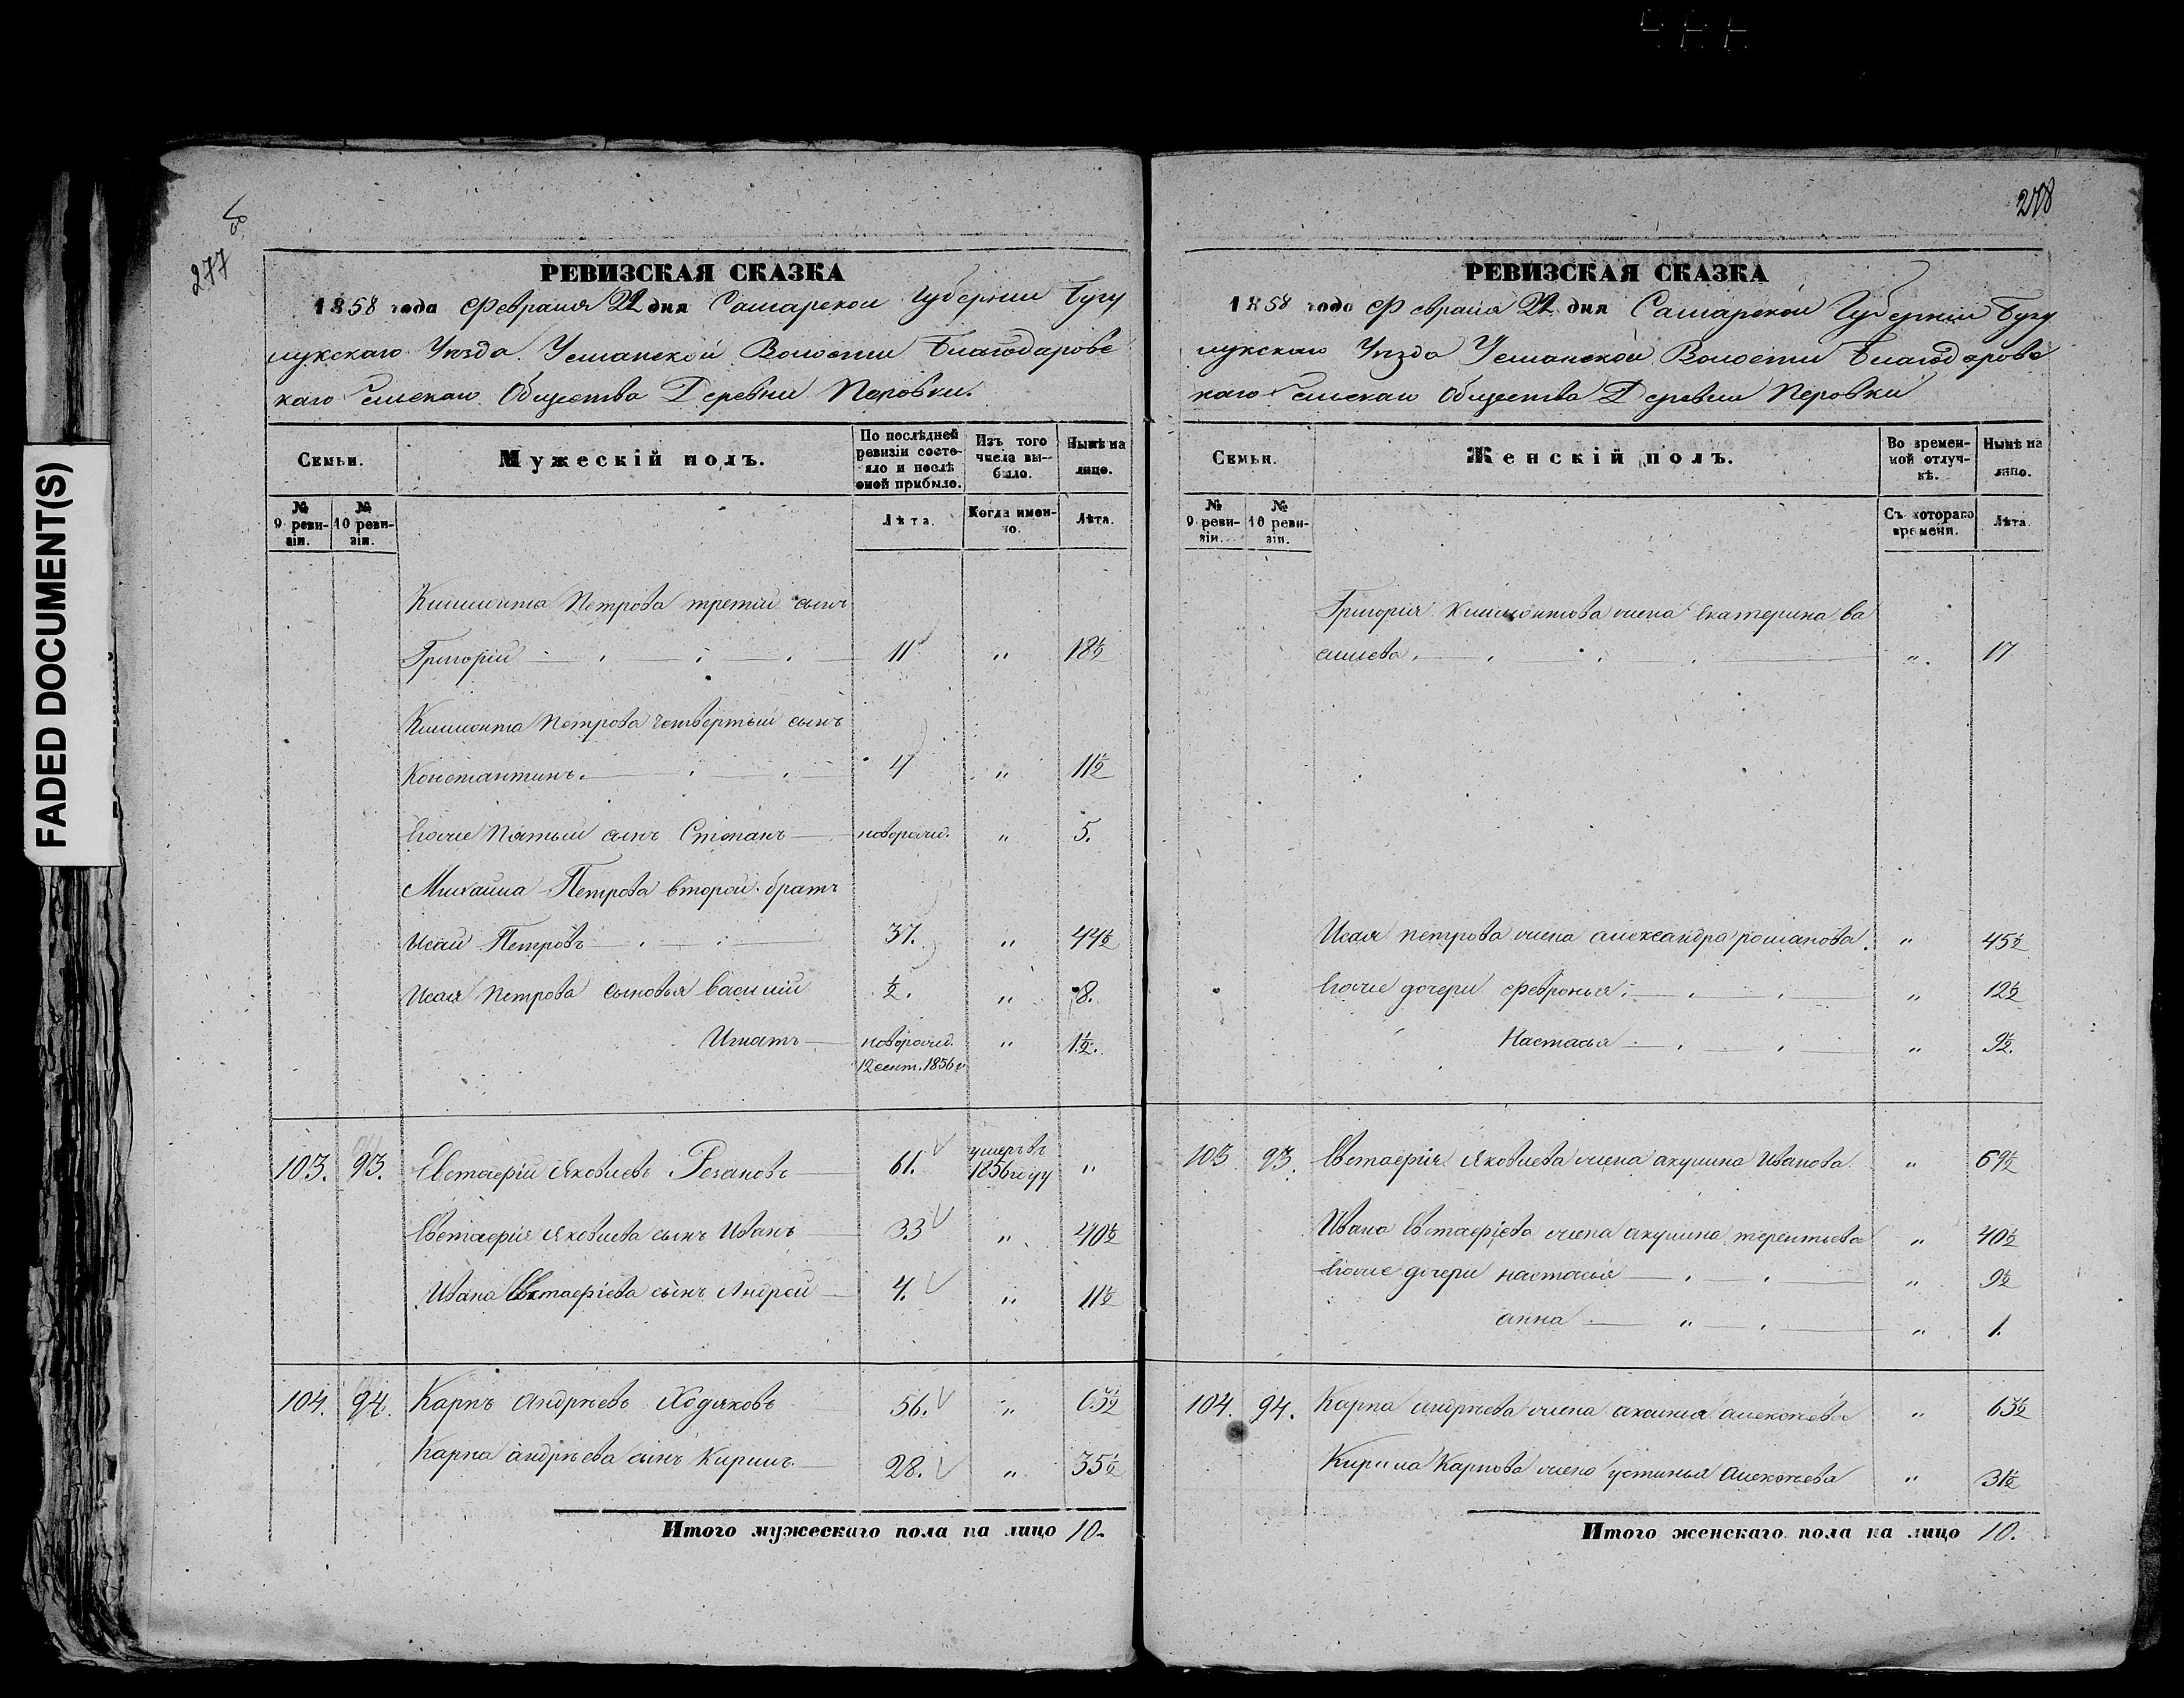 FADED DOCUMENT(S)
277
РЕВИЗСКАЯ СКАЗКА
1858 года Февраля 22 дня Самарской Губернии Бугу
лукскаго Уезда Усманской Волости Благодаровс
каго Сельскаго Общества Деревни Перовки.
Семьи.
Мужескій полъ.
По послѣдней ревизіи состояло и послѣ оной прибыло.
Изъ того числа выбыло.
Нынѣ на лицо.
№ 9 ревизіи.
№ 10 ревизіи.
Лѣта.
Когда именно.
Лѣта.
Климонта Петрова третій сынъ
Григорій 11 " 18½
Климонта Петрова четвертый сынъ
Константинъ 4 " 11½
Егоже Пятый сынъ Степанъ новорожд. " 5.
Михайла Петрова второй братъ
Исай Петровъ 37. " 44½
Исая Петрова сыновья Василій ½. " 8.
Игнатъ новорожд. " 1½.
12 сент. 1856 г
103. 93. Евстафій Яковлевъ Резановъ 61. умеръ въ 1856 году "
Евстафія Яковлева сынъ Иванъ 33 " 40½
Ивана Евстафіева сынъ Андрей 4. " 11½
104. 94. Карпъ Андрѣевъ Ходяковъ 56. " 63½
Карпа Андрѣева сынъ Кирилъ 28. " 35½
Итого мужескаго пола на лицо 10.
278
РЕВИЗСКАЯ СКАЗКА
1858 года Февраля 22 дня Самарской Губерніи Бугу
лукскаго Уѣзда Усманской Волости Благодаровс
каго Сельскаго Общества Деревни Перовки
Семьи.
Женскій полъ.
Во временной отлучкѣ.
Нынѣ на лицо.
№ 9 ревизіи.
№ 10 ревизіи.
Съ котораго времени.
Лѣта.
Григорія Климонтова жена Екатерина Ва
сильева " 17
Исая Петрова жена Александра Романова " 45½
Егоже дочери Февронья " 12½
Настасья " 9½.
103 93. Евстафія Яковлева жена Акулина Иванова " 69½
Ивана Евстафіева жена Акулина Терентьева " 40½
Егоже дочери Настасья " 9½
Анна " 1.
104. 94. Карпа Андрѣева жена Аксинья Алексѣева " 63½
Кирила Карпова жена Устинья Алексѣева " 31½
Итого женскаго пола на лицо 10.